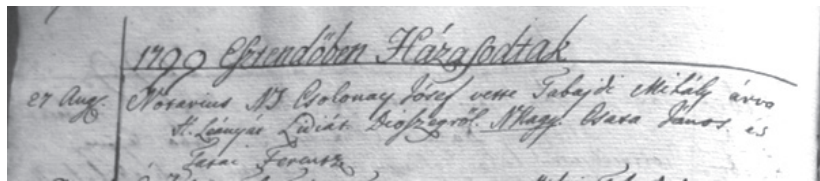 1799 Esztendőben Házasodtak
27 Aug. Notarius NS Csolonay Josef vette Tabajdi Mihály árva
H. Leányát Lidiát Dioszegről. NHagy. Csata János és
Tatai Ferentz